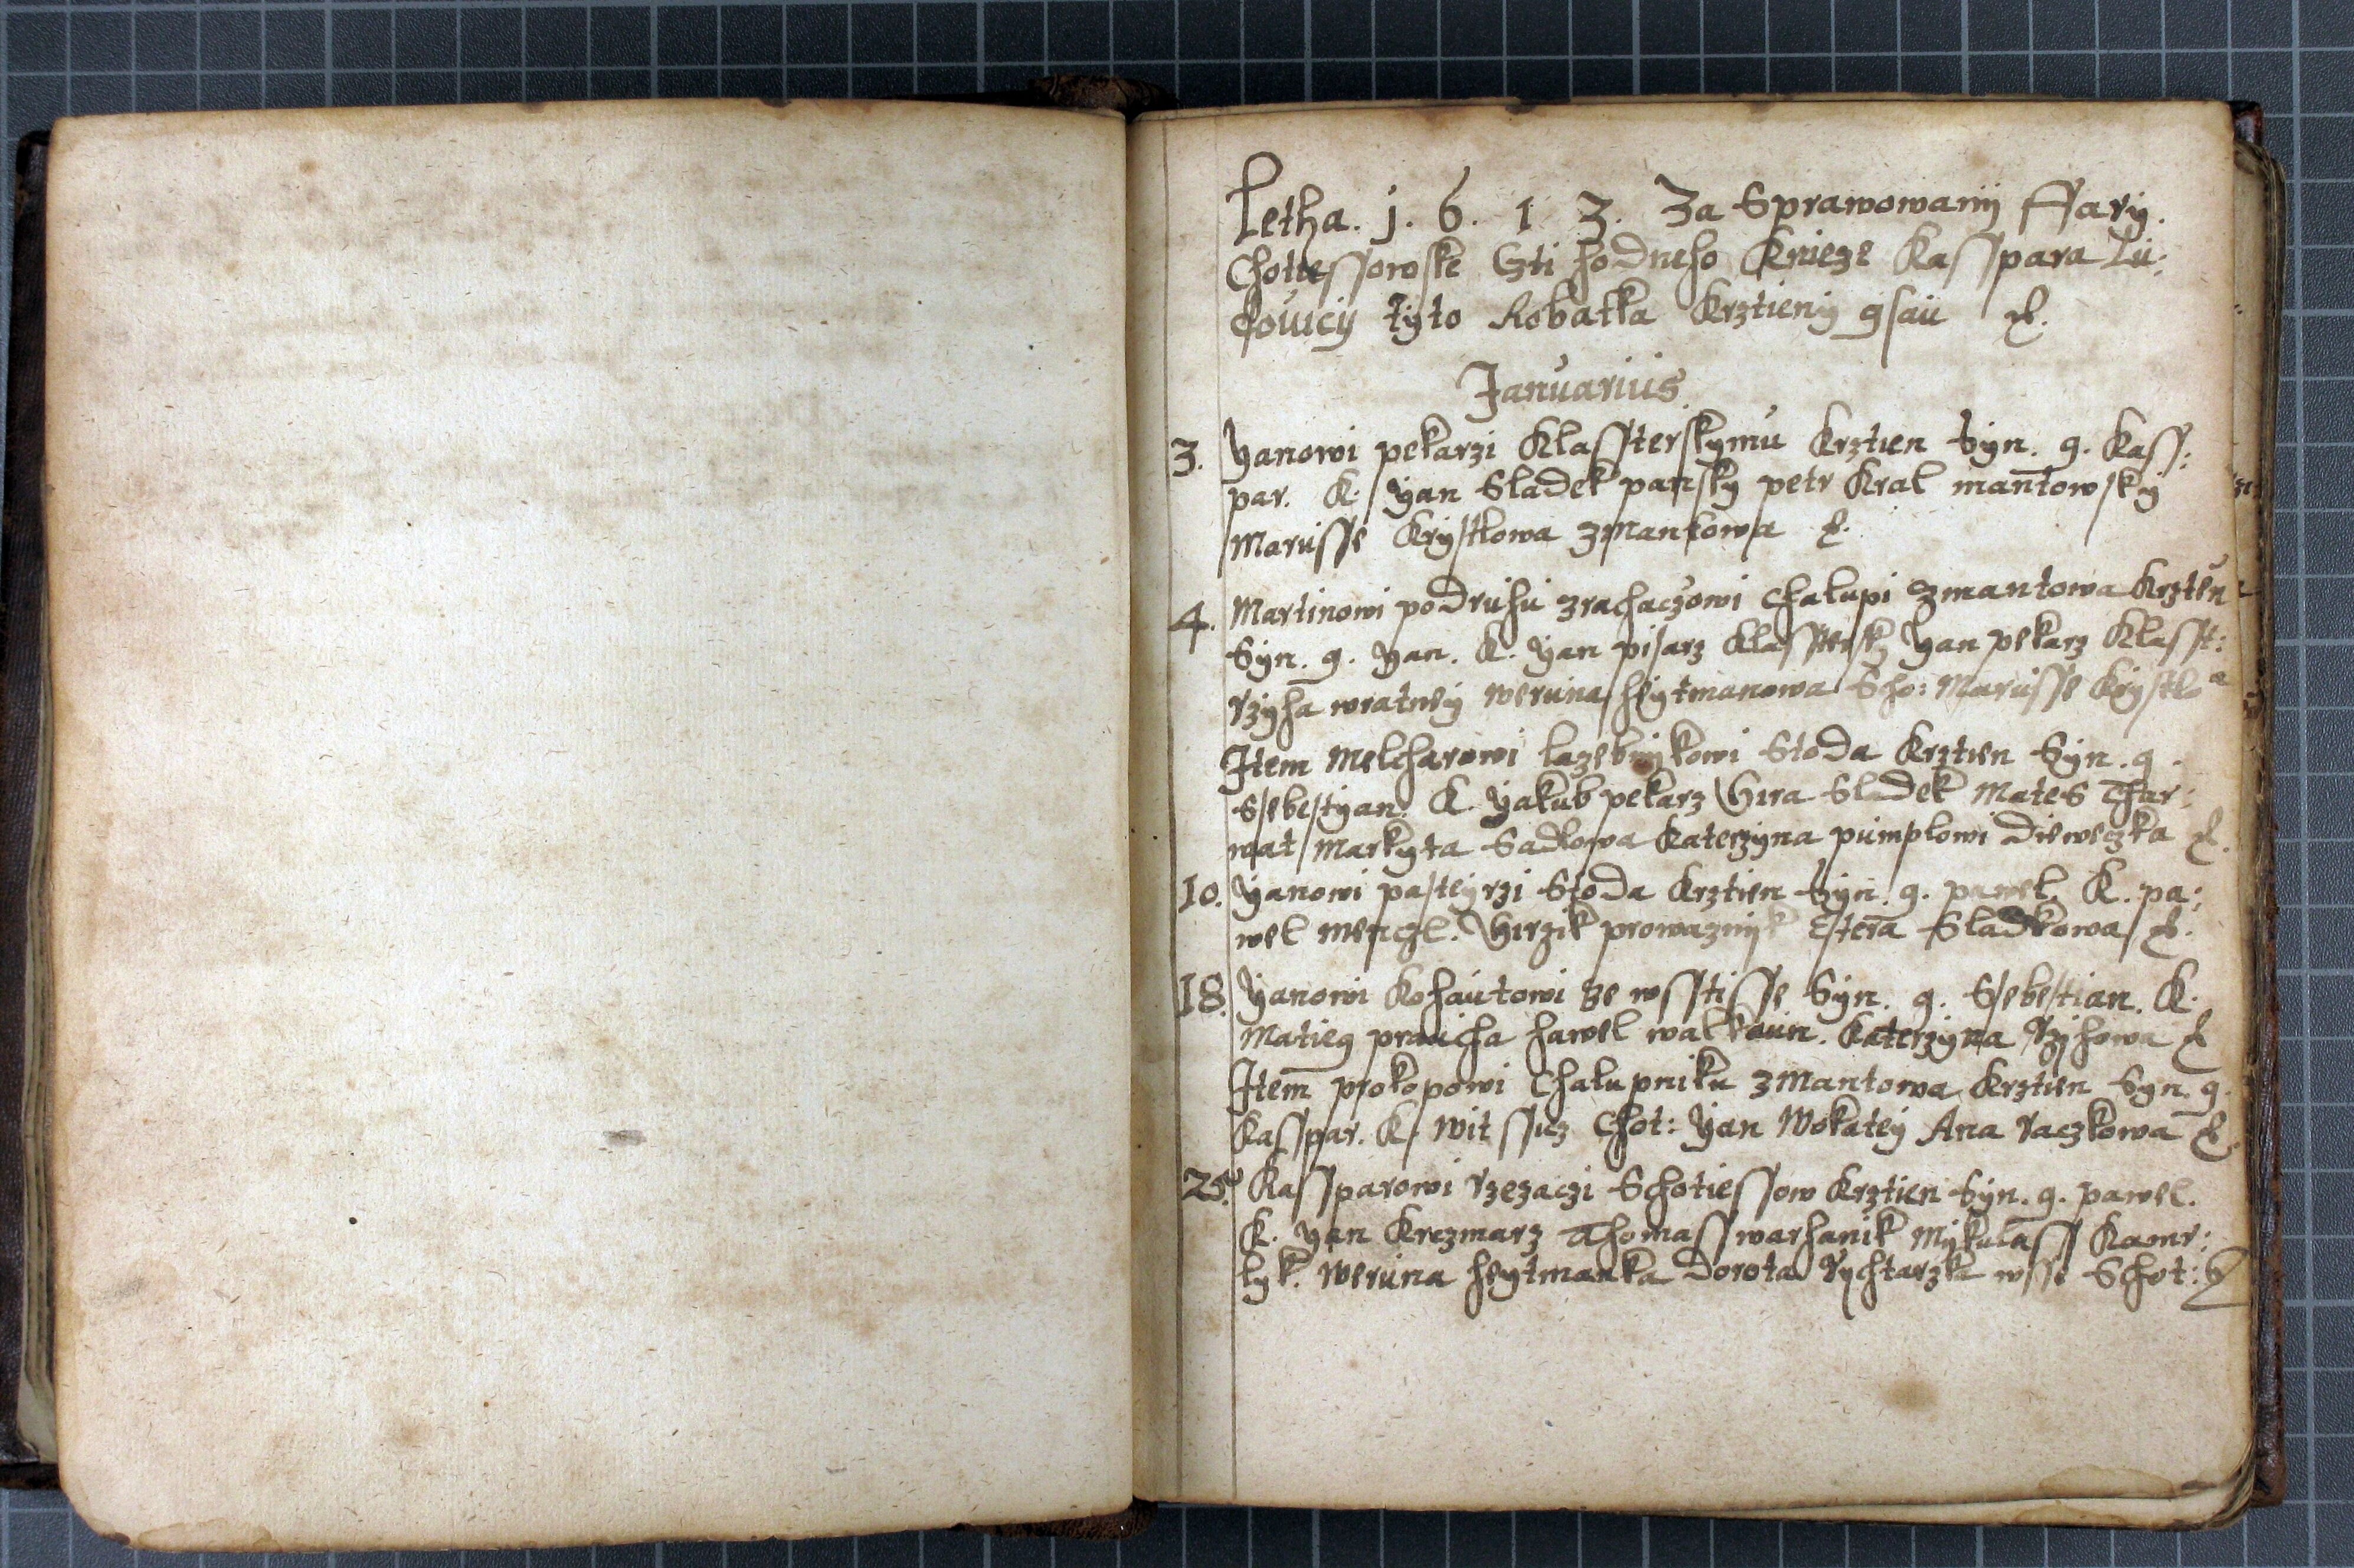 Letha. j. 6. 1 3. Za Sprawowanij ffary.
Chottessowske Czti hodneho Knieze Kasspara Lu:
dovicy tyto Robatka Krztieny gsau &.
Januarius
3. Yanowi pekarzi Klassterskymu Krztien Syn. g. Kass:
par. K. Yan Sladek pansky petr Kral mantowsky
Marusse Krystlowa zMantowa &.
4. Martinowi podruhu zrachaczowi Chalupi zmantowa Krzten
Syn. g. Yan. K. Yan pisarz Klassters: Yan pekarz Klasst:
rzyha wratney weruna heytmanowa Scho: Marusse Krystlo a
Item Melcharowi lazebnykowi Stoda Krztien Syn. g.
Ssebestyan. K. Yakub pekarz Gira Sladek Mates Char:
wat Markyta Sadlowa Katerzyna pumplowi Dieweczka &.
10. Yanowi pasteyrzi Stoda Krztien Syn. g. pawel. K. pa:
wel Menczl. Girzik prowaznyk Estera Sladkowa &.
18. Yanowi Kohautowi ze wsstisse Syn. g. Ssebestian. K.
Matieg praucha hawel walkaun. Katerzyna Rzihowa &
Item prokopowi Chalupniku zMantowa Krztien Syn. g.
Kasspar. K. Wit ssicz Chot: Yan Wokatey Ana raczkowa &
25. Kassparowi rzezaczi Schotiessow Krztien Syn. g. pawel.
K. Yan Krczmarz Thomass warhanik Mykulass Kamr:
lyk. Weruna heytmanka Dorota Rychtarzka wsse Schot: &